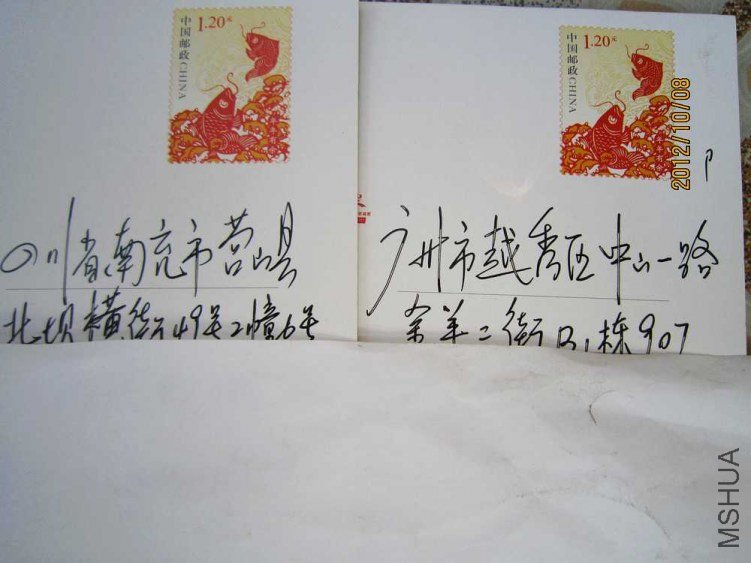 1.20元
中国邮政 CHINA
四川省南充市营山县
北坝横街49号2幢6号
1.20元
中国邮政 CHINA
2012/10/08
广州市越秀区中山一路
羊二街 栋907
MSHUA